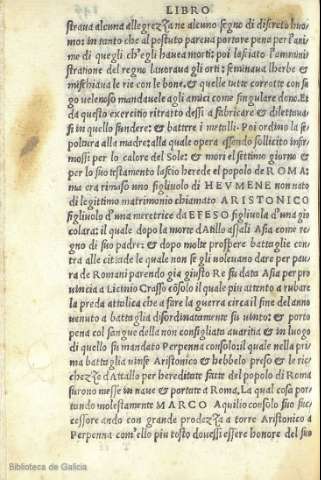 LIBRO
strava alcuna allegrezza ne alcuno segno di discreto huo
mo: in tanto che al postuto pareva portare pena per l'ani
me di quegli ch'egli havea morti: poi lasciato l'ammini
stratione del regno lavorava gli orti: seminava l'herbe &
mischiava le rie con le bone. & quelle tutte corrotte con su
go velenoso mandavele agli amici come singulare dono. Et
da questo exercitio ritratto dessi a fabricare & dilettava
si in quello fundere: & battere i metalli. Poi ordino la se
poltura alla madre: alla quale opera essendo sollicito infir
mossi per lo calore del Sole: & mori el settimo giorno &
per lo suo testamento lascio herede el popolo de ROMA:
ma era rimaso uno figliuolo di HEUMENE non nato
di legittimo matrimonio chiamato ARISTONICO
figliuolo d'una meretrice da EFESO figliuola d'una gio
colara: il quale dopo la morte d'Atillo assali Asia come re
gno di suo padre: & dopo molte prospere battaglie con
tra alle cittade le quali non se gli volevano dare per pau
ra de Romani parendo gia giusto Re su dato Asia per pro
vincia a Licinio Crasso cõsolo il quale piu attento a rubare
la preda attolica che a fare la guerra circa il fine del anno
venuto a battaglia disordinatamente fu vinto: & porto
pena col sangue della non consigliata avaritia & in luogo
di quello fu mandato Perpenna consolo: il quale nella pri
ma battaglia vinse Aristonico & hebbelo preso & le ric
chezze d'Attallo per hereditate fatte del popolo di Roma
furono messe in nave & portate a Roma. La qual cosa por
tando molestamente MARCO Aquilio consolo suo suc
cessore ando con grande prodezza a torre Aristonico a
Perpenna com'ello piu tosto dovessi essere honore del suo
Biblioteca de Galicia